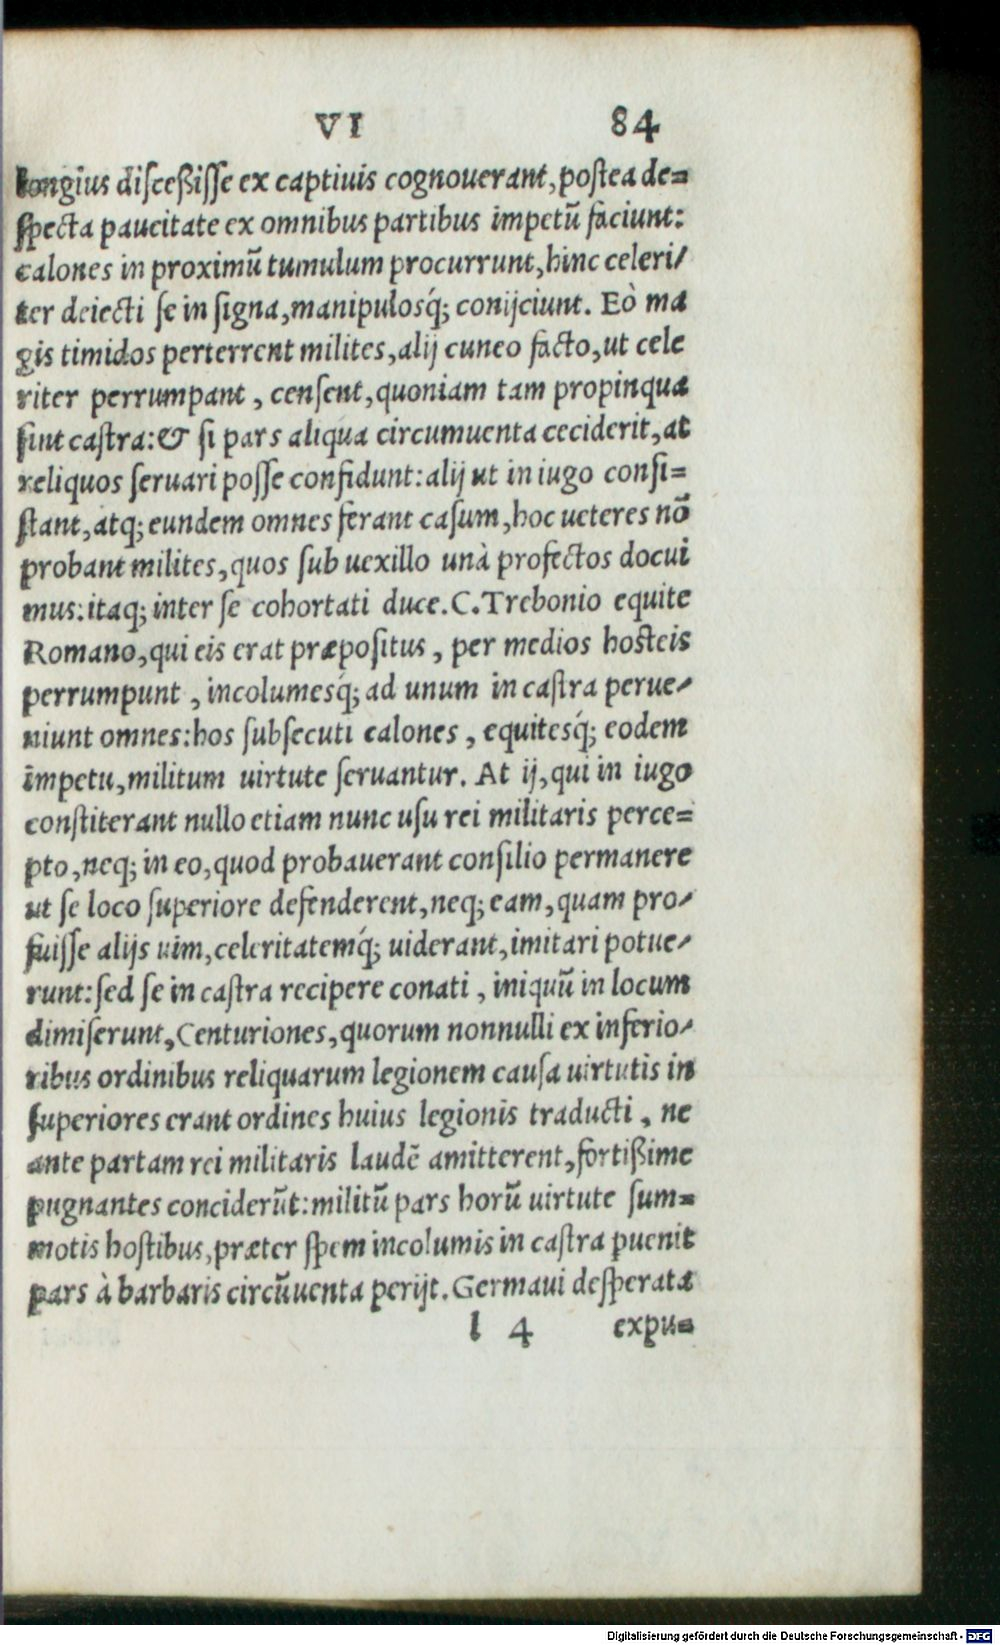 VI 84
longius diſceßiſſe ex captiuis cognouerant, poſtea de=
ſpecta paucitate ex omnibus partibus impetũ faciunt:
calones in proximũ tumulum procurrunt, hinc celeri/
ter deiecti ſe in ſigna, manipulosq́; conijciunt. Eò ma
gis timidos perterrent milites, alij cuneo facto, ut cele
riter perrumpant, cenſent, quoniam tam propinqua
ſint caſtra: & ſi pars aliqua circumuenta ceciderit, at
reliquos ſeruari poſſe confidunt: alij ut in iugo conſi=
ſtant, atq; eundem omnes ferant caſum, hoc ueteres nõ
probant milites, quos ſub uexillo unà profectos docui
mus: itaq; inter ſe cohortati duce. C. Trebonio equite
Romano, qui eis erat præpoſitus, per medios hosteis
perrumpunt, incolumesq́; ad unum in caſtra perue/
niunt omnes: hos ſubſecuti calones, equitesq́; eodem
impetu, militum uirtute ſeruantur. At ij, qui in iugo
conſtiterant nullo etiam nunc uſu rei militaris perce=
pto, neq; in eo, quod probauerant conſilio permanere
ut ſe loco ſuperiore defenderent, neq; eam, quam pro/
fuiſſe alijs uim, celeritatemq́; uiderant, imitari potue/
runt: ſed ſe in caſtra recipere conati, iniquũ in locum
dimiſerunt, Centuriones, quorum nonnulli ex inferio/
ribus ordinibus reliquarum legionem cauſa uirtutis in
ſuperiores erant ordines huius legionis traducti, ne
ante partam rei militaris laudẽ amitterent, fortißime
pugnantes conciderũt: militũ pars horũ uirtute ſum=
motis hoſtibus, præter ſpem incolumis in caſtra puenit
pars à barbaris circũuenta perijt. Germaui deſperata
l 4 expu=
Digitalisierung gefördert durch die Deutsche Forschungsgemeinschaft - DFG